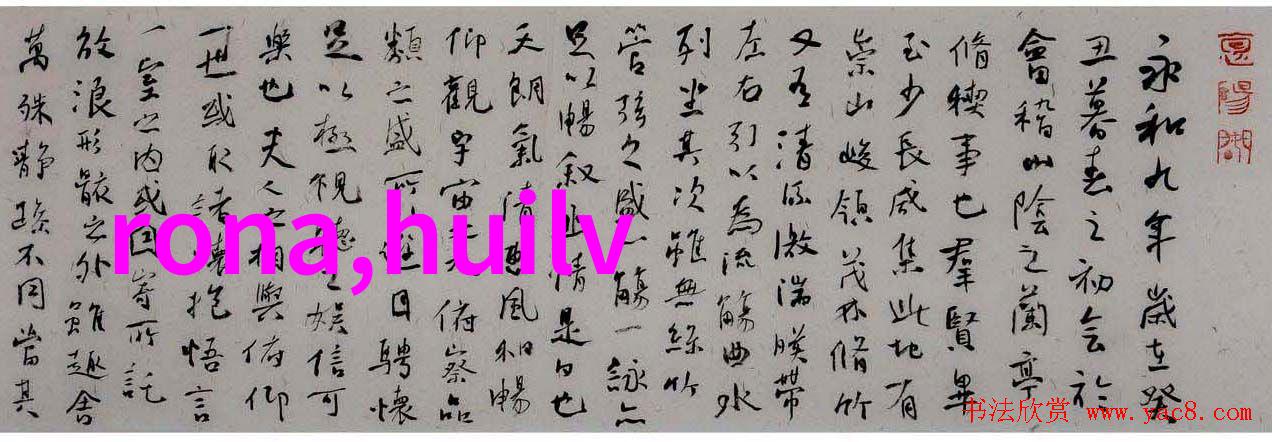 永和九年歲在癸
丑暮春之初会於
會稽山陰之蘭亭
脩稧事也羣賢畢
至少長咸集此地有
崇山峻領茂林脩竹
又有清流激湍暎帶
左右引以為流觴曲水
列坐其次雖無絲竹
管弦之盛一觴一詠亦
足以暢叙幽情是日也
天朗氣清惠風和暢
仰觀宇宙之大俯察品
類之盛所以遊目騁懷
足以極視聽之娱信可
樂也夫人之相與俯仰
一世或取諸懷抱悟言
一室之内或因寄所託
放浪形骸之外雖趣舍
萬殊靜躁不同當其
rona,huilv
书法欣赏 www.yac8.com